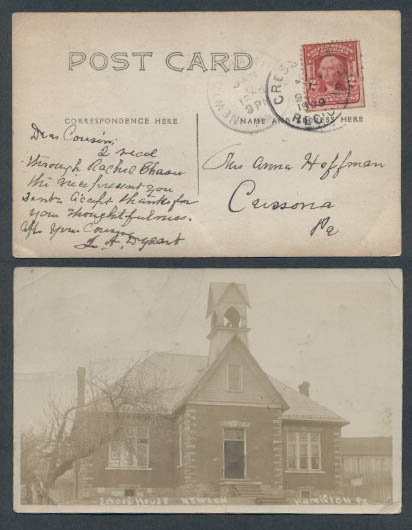 POST CARD
CORRESPONDENCE HERE
NAME AND ADDRESS HERE
CRESS
1909
REC'D
NEW
Dear Cousin:
I recd
through Rachel
the nice present you
sent & accept thanks for
your thoughtfulness.
Your Cousin
Miss Anna Hoffman
Cressona
Pa
School House
Hamilton Pa